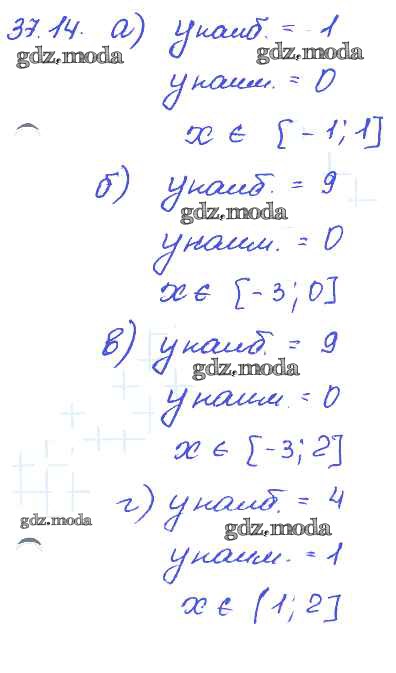 37.14. а) yнаиб. = 1
gdz.moda gdz.moda
yнаим. = 0
x ∈ [-1; 1]
б) yнаиб. = 9
gdz.moda
yнаим. = 0
x ∈ [-3; 0]
в) yнаиб. = 9
gdz.moda
yнаим. = 0
x ∈ [-3; 2]
г) yнаиб. = 4
gdz.moda gdz.moda
yнаим. = 1
x ∈ [1; 2]